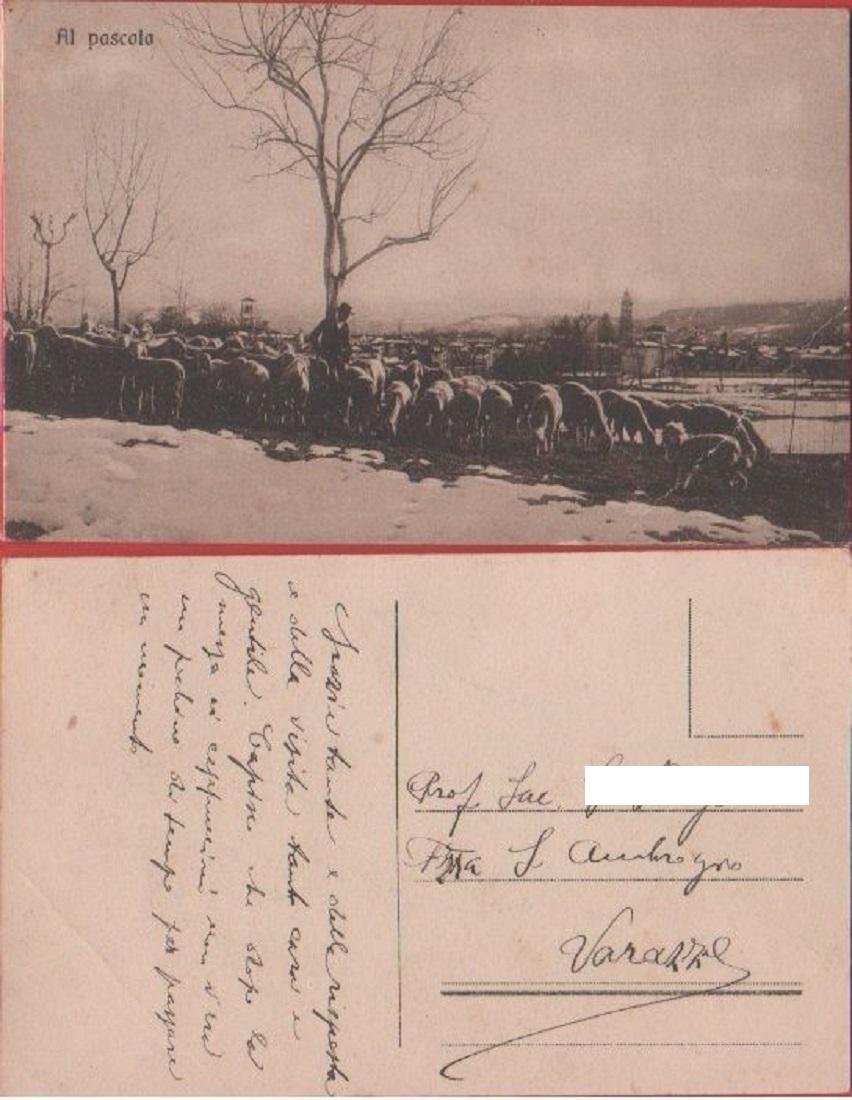 Al pascolo
Grazie tante e della risposta
e della visita tanto cara e
gentile. Capisco che dopo la
messa ai cappuccini non v'era
un pochino di tempo per passare
un momento
Prof. Sac.
P.zza S. Ambrogio
Varazze